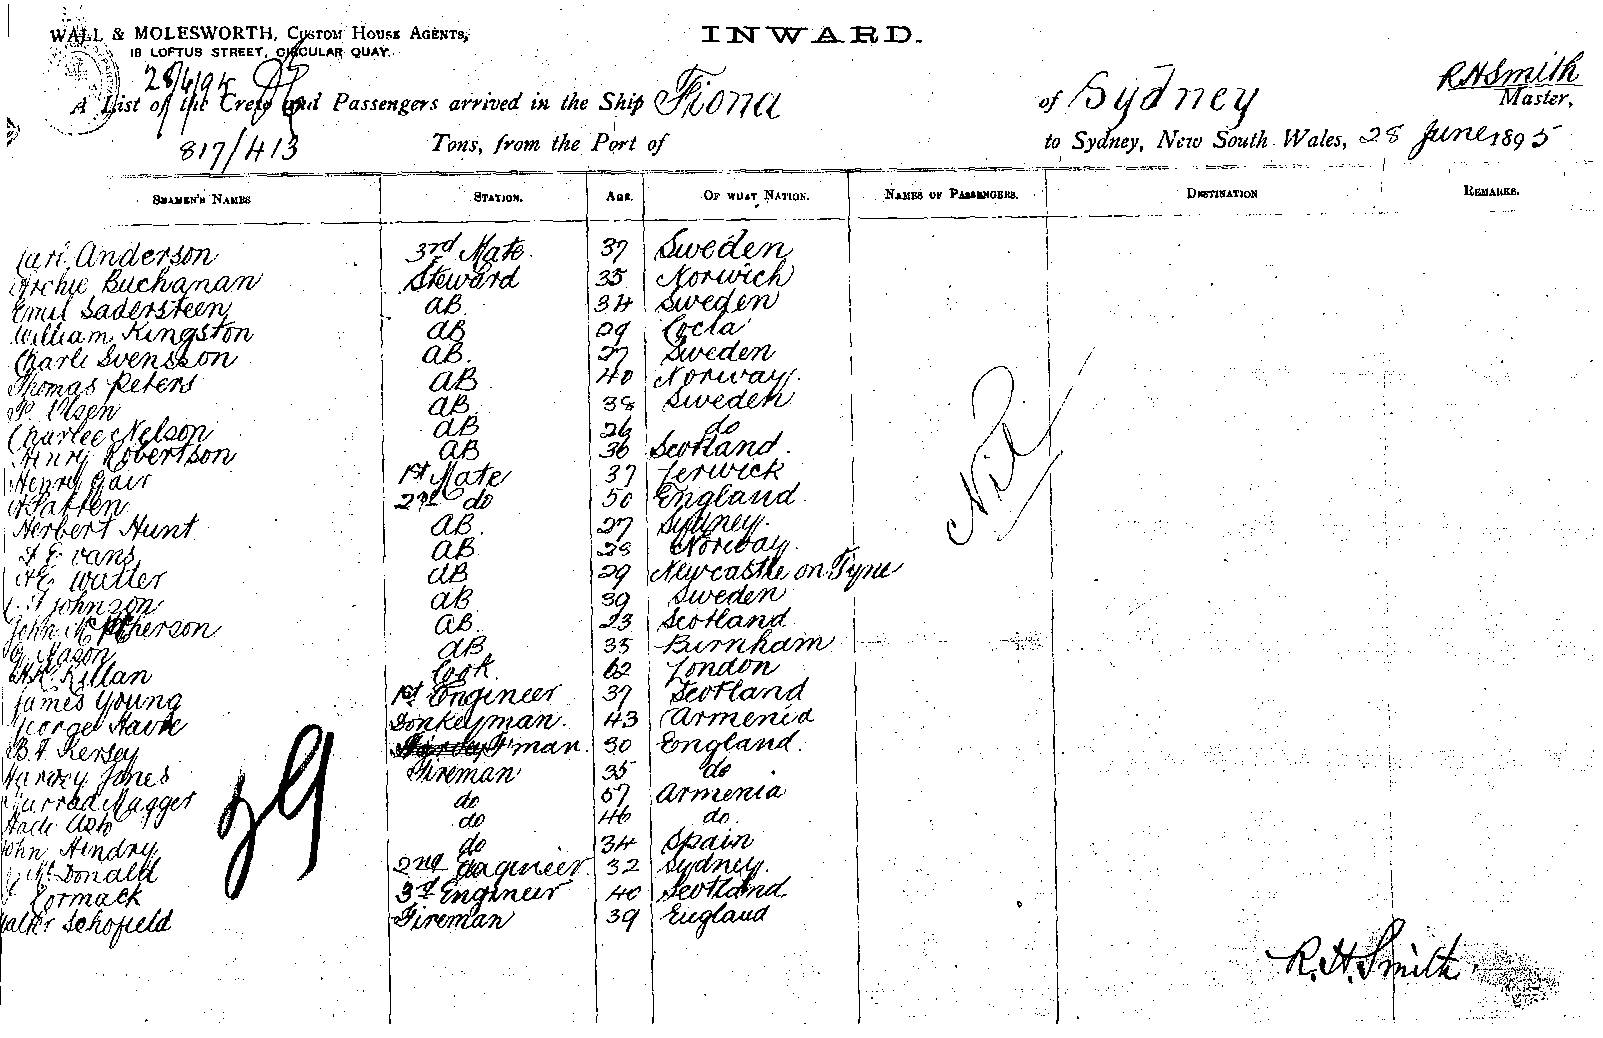 WALL & MOLESWORTH, CUSTOM HOUSE AGENTS,
18 LOFTUS STREET, CIRCULAR QUAY.
INWARD.
28/6/95
R H Smith
Master,
A List of the Crew and Passengers arrived in the Ship Fiona of Sydney
817/413 Tons, from the Port of to Sydney, New South Wales, 28 June 1895
SEAMEN'S NAMES STATION. AGE. OF WHAT NATION. NAMES OF PASSENGERS. DESTINATION REMARKS.
Anderson 3rd Mate. 37 Sweden
Archie Buchanan Steward 35 Norwich
Emil Sadersteen AB. 34 Sweden
William Kingston AB 29
Charle Svensson AB. 27 Sweden
Thomas Peters AB 40 Norway.
P. Olsen AB. 38 Sweden
Charlee Nelson AB 26 do
Henry Robertson AB 36 Scotland.
Henry Gair 1st Mate 37 Lerwick
Patten 2nd do 50 England.
Herbert Hunt AB. 27 Sydney.
Evans AB. 28 Norway.
Walter AB 29 Newcastle on Tyne
Johnson AB. 39 Sweden
John McPherson AB. 23 Scotland
Mason AB. 35 Burnham
Killan Cook. 62 London
James Young 1st Engineer 37 Scotland
George Donkeyman. 43 Armenia
B. F. Kersey F'man. 30 England.
Harvey Jones Fireman 35 do
Magger do 57 Armenia
do 46 do.
John Hindry do 34 Spain
McDonald 2nd Engineer. 32 Sydney.
Cormack 3rd Engineer 40 Scotland.
Walter Schofield Fireman 39 England
Nil
29
R. H. Smith.